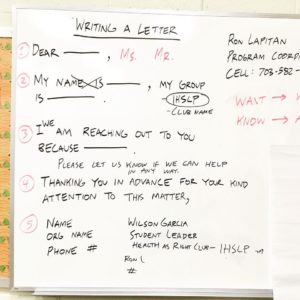 WRITING A LETTER
① DEAR ______, MS. MR.
② MY NAME IS ______, MY GROUP
IS ______. IHSLP
- CLUB NAME
③ I WE AM REACHING OUT TO YOU
BECAUSE ______.
PLEASE LET US KNOW IF WE CAN HELP
IN ANY WAY.
④ THANKING YOU IN ADVANCE FOR YOUR KIND
ATTENTION TO THIS MATTER,
⑤ NAME WILSON GARCIA
ORG NAME STUDENT LEADER
PHONE # HEALTH AS RIGHT CLUB - IHSLP
RON L
#
RON LAPITAN
PROGRAM COORD
CELL: 708-582-
WANT →
KNOW →